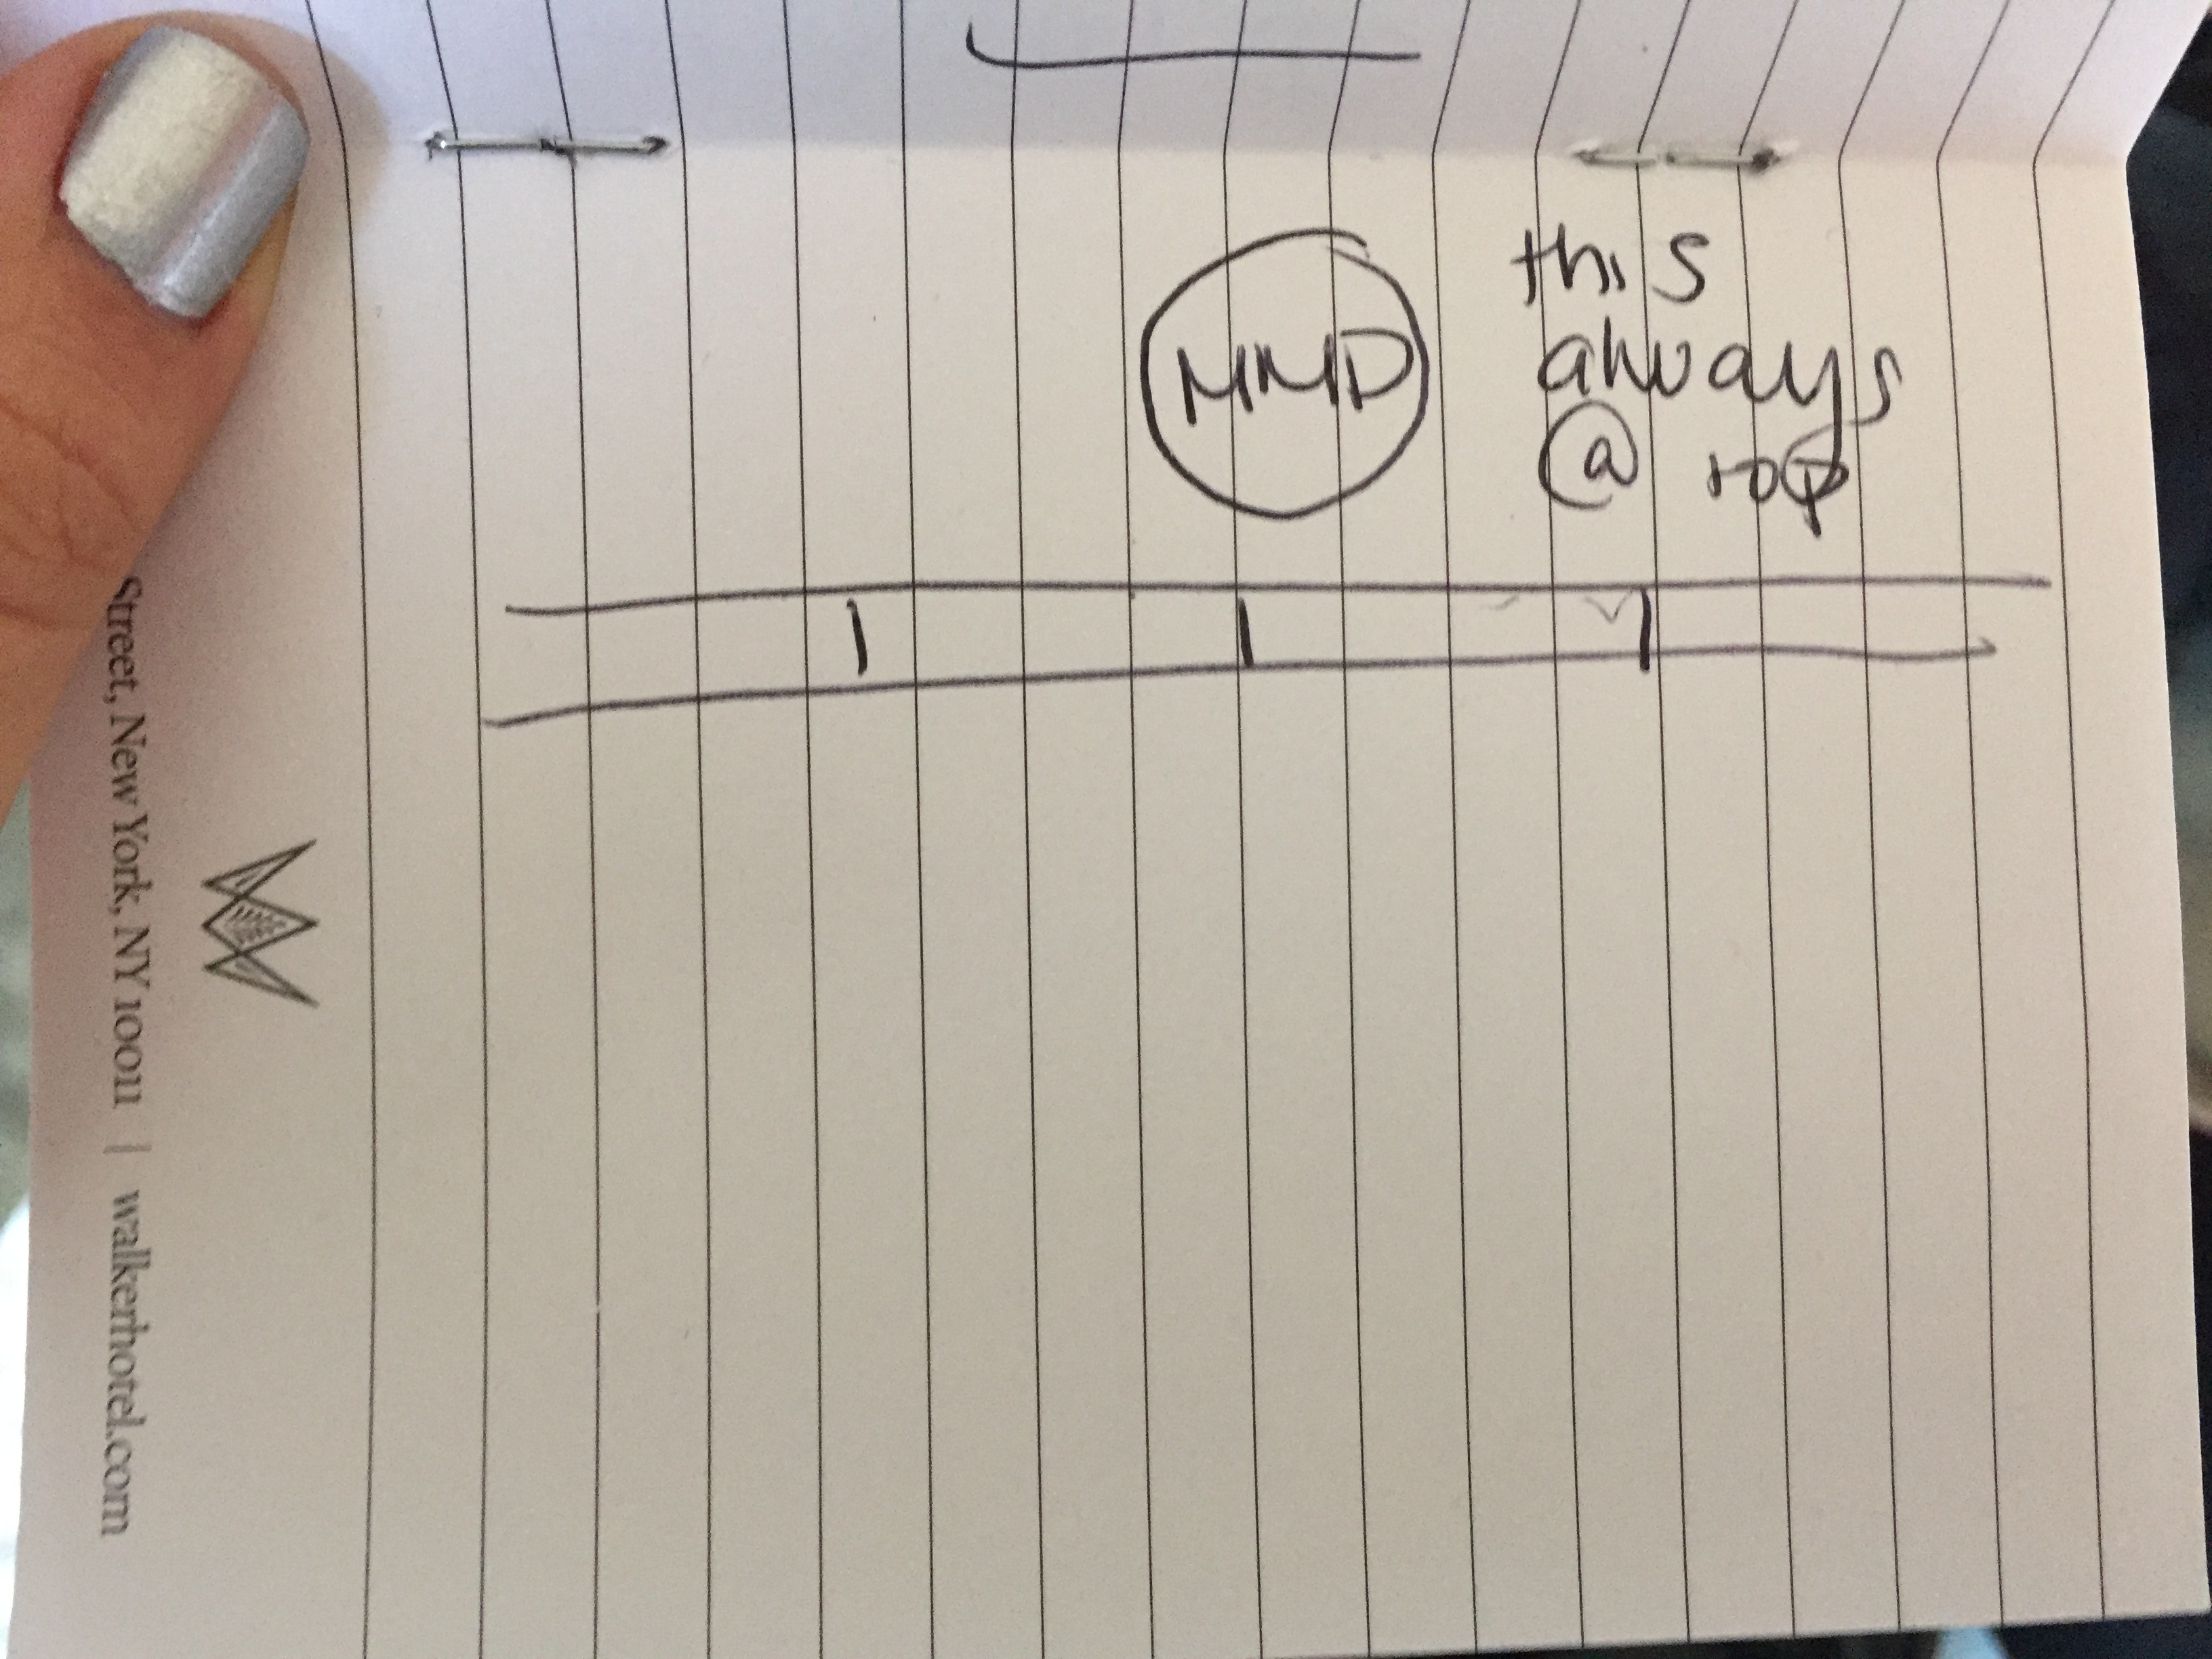 MMD
this
always
@ top
Street, New York, NY 10011 | walkerhotel.com